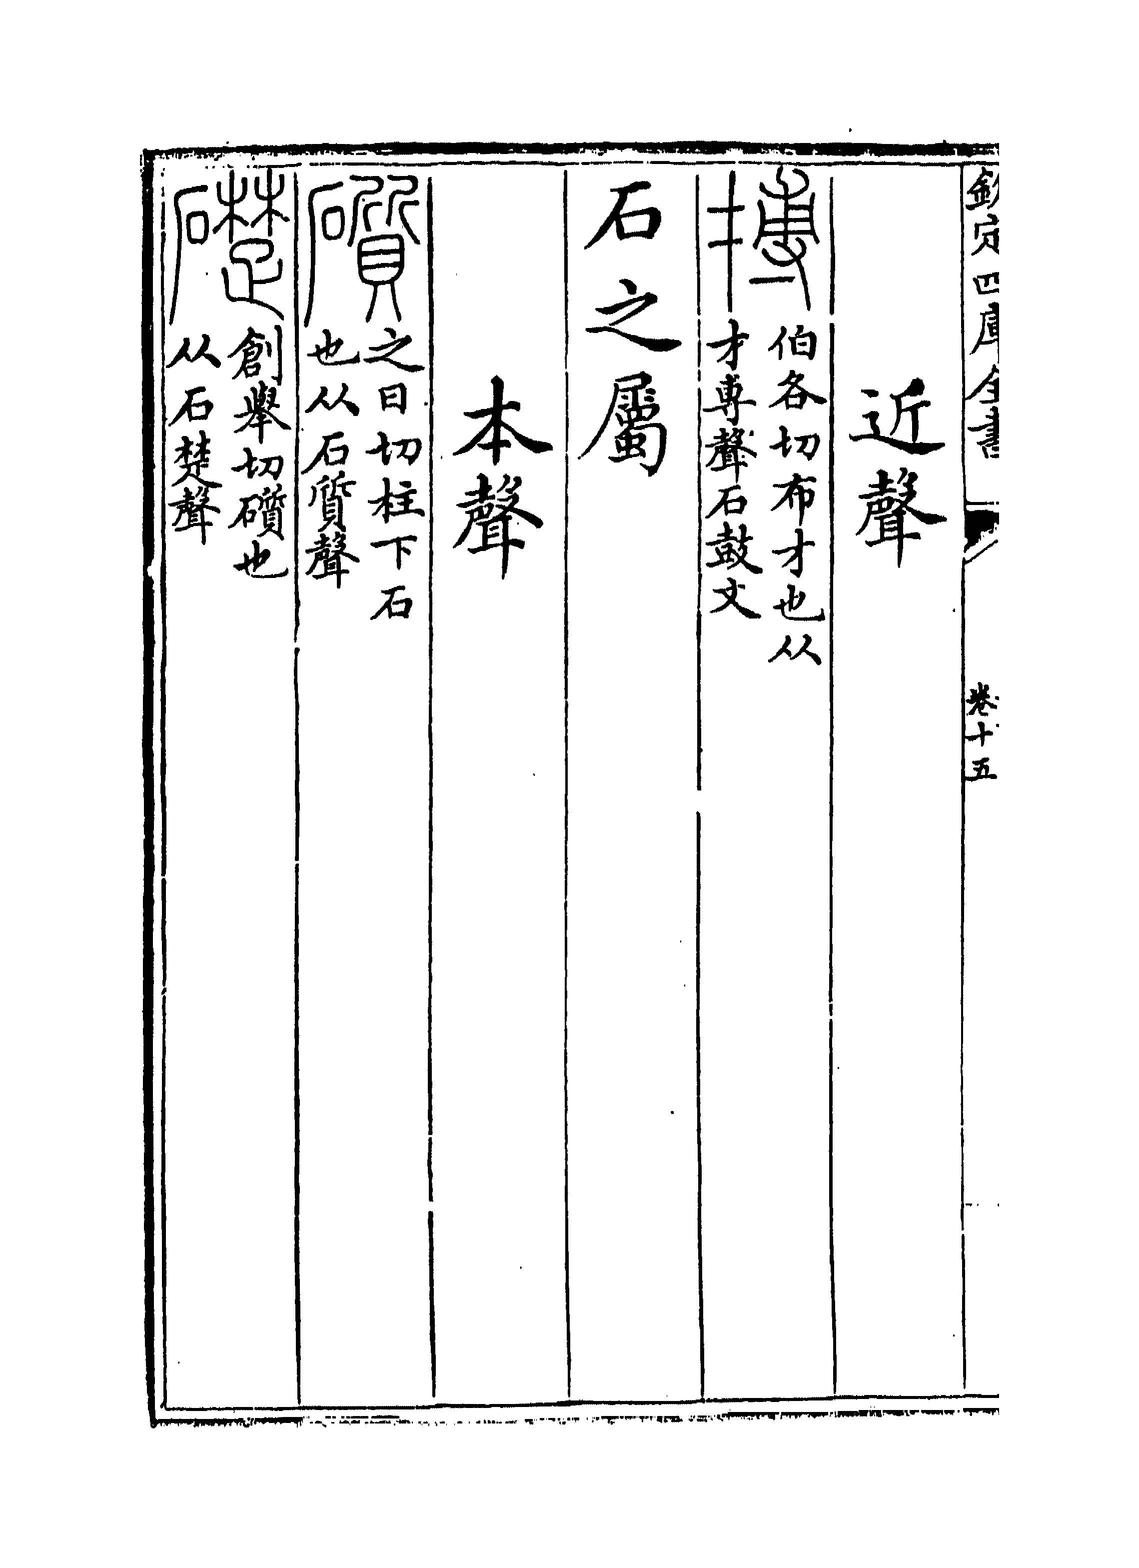 欽定四庫全書
卷十五
近聲
伯各切布才也从
才尃聲石鼓文
石之屬
本聲
礩
之日切柱下石
也从石質聲
礎
創舉切礩也
从石楚聲